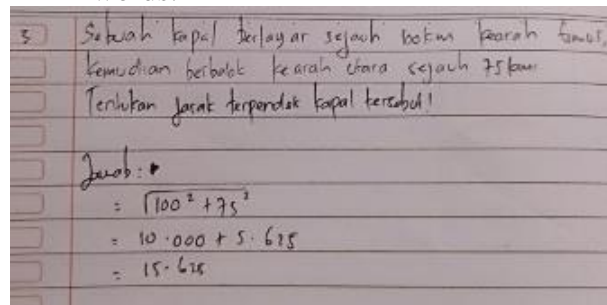 3 Sebuah kapal berlayar sejauh 100 km kearah timur,
kemudian berbalok kearah utara sejauh 75 km
Tentukan jarak terpendek kapal tersebut!
Jawab:
= √100² + 75²
= 10.000 + 5.625
= 15.625